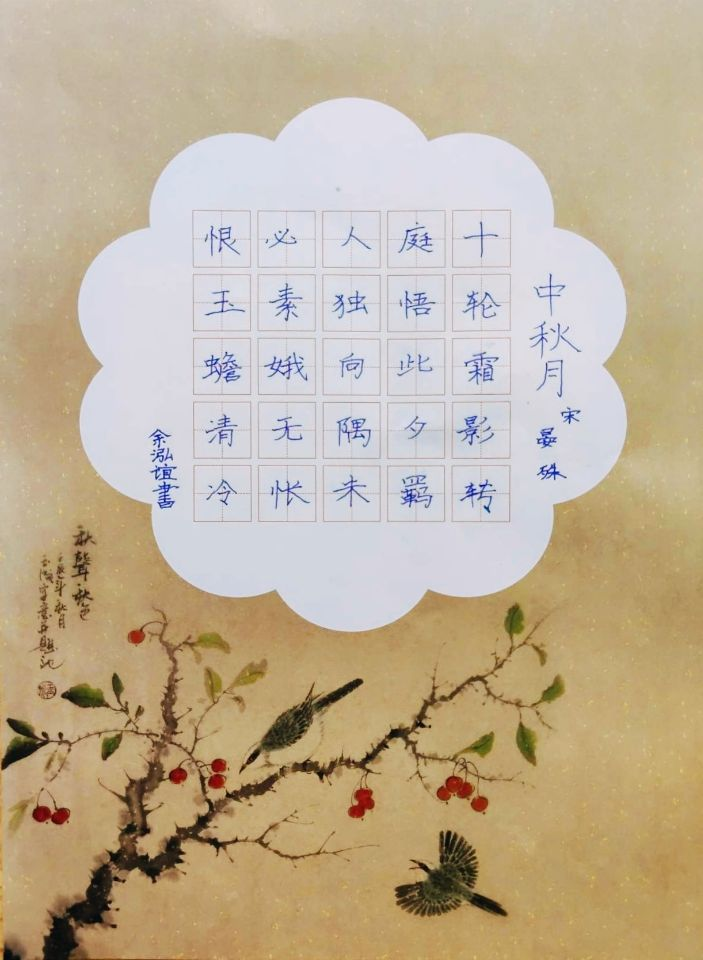 中秋月
宋 晏殊
十轮霜影转
庭悟此夕羁
人独向隅未
必素娥无怅
恨玉蟾清冷
余泓谊書
秋聲秋色
年秋月